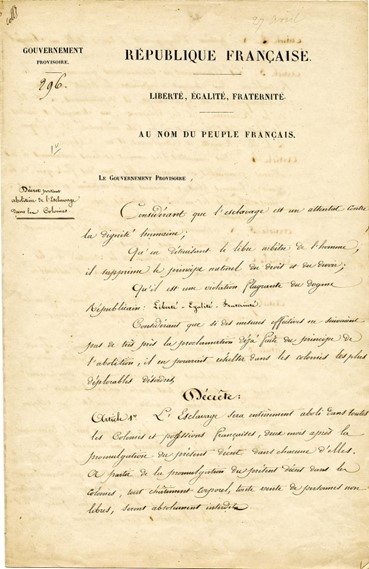 27 avril
GOUVERNEMENT
PROVISOIRE.
296.
RÉPUBLIQUE FRANÇAISE.
LIBERTÉ, ÉGALITÉ, FRATERNITÉ.
AU NOM DU PEUPLE FRANÇAIS.
1er
LE GOUVERNEMENT PROVISOIRE,
Décret portant
abolition de l'Esclavage
dans les Colonies
Considérant que l'esclavage est un attentat contre
la dignité humaine;
Qu'en détruisant le libre arbitre de l'homme,
il supprime le principe naturel du droit et du devoir;
Qu'il est une violation flagrante du dogme
Républicain: Liberté - Egalité - Fraternité.
Considérant que si des mesures effectives ne suivaient
pas de très près la proclamation déjà faite du principe de
l'abolition, il en pourrait résulter dans les colonies les plus
déplorables désordres,
Décrète:
Article 1er L'Esclavage sera entièrement aboli dans toutes
les Colonies et possessions françaises, deux mois après la
promulgation du présent décret dans chacune d'elles.
A partir de la promulgation du présent décret dans les
colonies, tout châtiment corporel, toute vente de personnes non
libres, seront absolument interdits